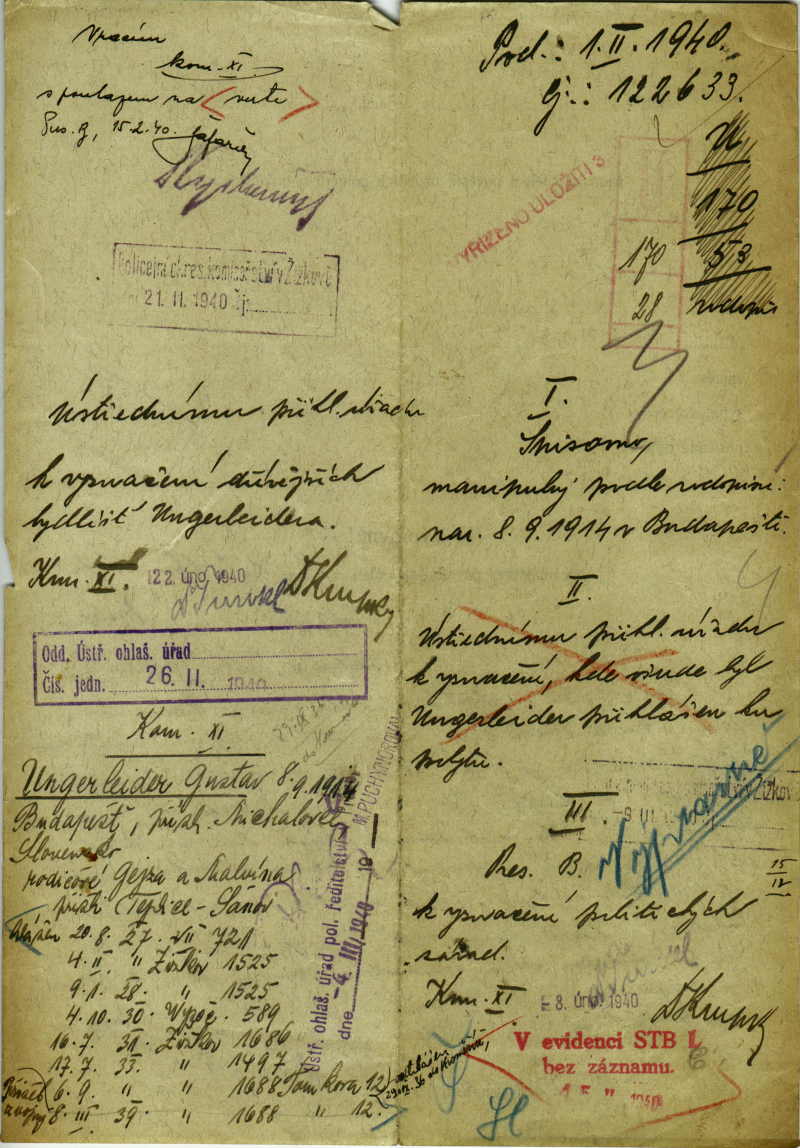 Vracím
kom. XI.
s poukazem na verte
Pres. B, 15.2.40.
Policejní okres. komisařství v Žižkově
21. II. 1940 Čj.
Ústřednímu přihl. úřadu
k vyznačení dřívějších
bydlišť Ungerleidera.
Kom. XI. 22. úno. 1940 Dr Krupský
Odd. Ústř. ohlaš. úřad
Čís. jedn. 26. II. 1940
Kom. XI
Ungerleider Gustav 8.9.1914
Budapešť, přísl. Michalovce
Slovensko
rodičové Gejza a Malvína
přišli Teplice-Šanov
hlášen 20. 8. 27. VII 721
4. II. " Žižkov 1525
9. 1. 28. " 1525
4. 10. 30. Vysoč. 589
16. 7. 31. Žižkov 1686
17. 7. 33. " 1497
6. 9. " " 1688 Tomkova 12
8. III 39. " 1688 " 12.
Ústř. ohlaš. úřad pol. ředitelství
dne -4. III. 1940 19
Pod.: 1. II. 1940.
čj.: 122633.
U
170
53
170
28 rodopis
VYŘÍZENO ULOŽITI 3
I.
Spisovna,
manipuluj podle rodopisné:
nar. 8.9.1914 v Budapešti.
II.
Ústřednímu přihl. úřadu
k vyznačení, kde všude byl
Ungerleider přihlášen ku
pobytu.
III.
Pres. B.
15/12
k vyznačení politických
závad.
Kom. XI 8. úno. 1940 Dr Krupský
V evidenci STB I.
bez záznamu.